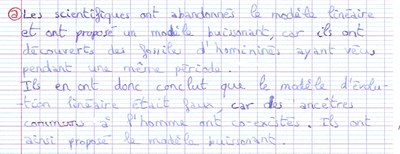 a) Les scientifiques ont abandonnés le modèle linéaire
et ont proposé un modèle buissonant, car ils ont
découverts des fossile d'homininés ayant vécu
pendant une même période.
Ils en ont donc conclut que le modèle d'évolu-
tion linéaire était faux, car des ancêtres
communs à l'homme ont co-existés. Ils ont
ainsi proposé le modèle buissonant.